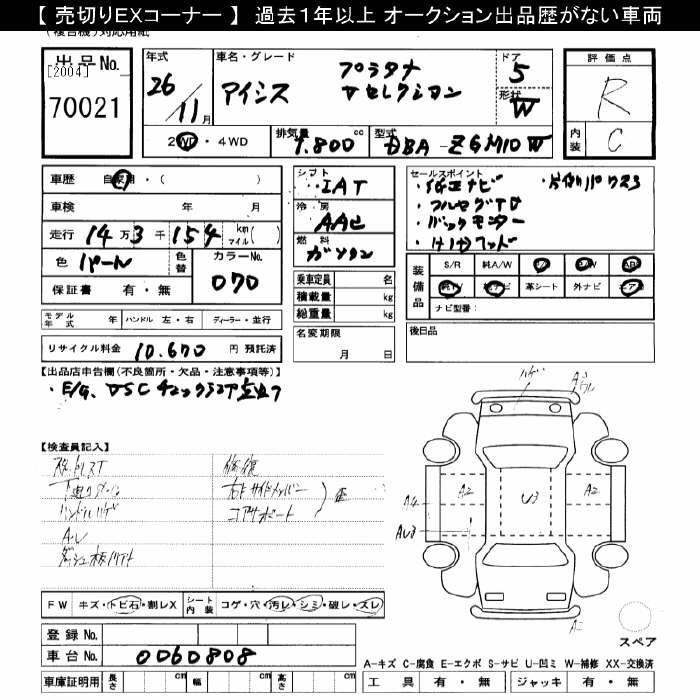 【 売切りEXコーナー 】 過去１年以上 オークション出品歴がない車両
(複合機)対応用紙
出品No.
[2004]
70021
年式
26
11月
車名・グレード
プラタナ
アイシス Vセレクション
ドア
5
形状
W
評価点
R
内装
C
2WD・4WD
排気量 1.800 cc
型式 DBA-ZGM10W
車歴 自家用・( )
車検 年 月
走行 14万3千154 km マイル( )
色 パール
色替
カラーNo. 070
保証書 有・無
シフト IAT
冷房 AAC
燃料 ガソリン
乗車定員 名
積載量 kg
総重量 kg
セールスポイント
・純正ナビ ・片側パワスラ
・フルセグTV
・バックモニター
装備品
S/R 純A/W P/S P/W ABS
純TV 純ナビ 革シート 外ナビ エアB
ナビ型番:
モデル年式 年
ハンドル 左・右
ディーラー・並行
リサイクル料金 10.670 円 預託済
名変期限
月 日
後日品
【出品店申告欄(不良箇所・欠品・注意事項等)】
・E/G、VSCチェックランプ点灯
【検査員記入】
下廻り
ハンドルハゲ
修復
右サイドメンバー
コアサポート
ハゲ
A2
A2
U3
A4
AU3
FW キズ・トビ石・割レX
シート内装 コゲ・穴・汚レ・シミ・破レ・スレ
登録No.
車台No. 0060808
車庫証明用 長さ cm 幅 cm 高さ cm
スペア
A-キズ C-腐食 E-エクボ S-サビ U-凹ミ W-補修 XX-交換済
工具 有・無 ジャッキ 有・無